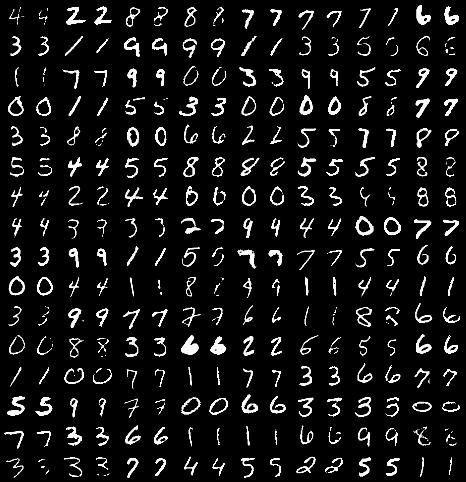 4 4 2 2 8 8 8 8 7 7 7 7 7 7 6 6
3 3 1 1 9 9 9 9 1 1 3 3 5 5 6 6
1 1 7 7 9 9 0 0 3 3 9 9 5 5 9 9
0 0 1 1 5 5 3 3 0 0 0 0 8 8 7 7
3 3 8 8 0 0 6 6 2 2 5 5 7 7 8 8
5 5 4 4 5 5 8 8 8 8 5 5 5 5 8 8
4 4 2 2 4 4 0 0 0 0 3 3 8 8
4 4 3 3 2 2 9 9 4 4 0 0 7 7
3 3 9 9 1 1 5 5 7 7 7 7 5 5 6 6
0 0 4 4 1 1 8 9 9 1 1 4 4 1 1
3 3 9 9 7 7 7 7 6 6 1 1 8 8 6 6
0 0 8 8 3 3 6 6 2 2 6 6 5 5 6 6
1 1 0 0 7 7 1 1 7 7 3 3 6 6 7 7
5 5 9 9 7 7 0 0 6 6 3 3 3 3 0 0
7 7 3 3 6 6 1 1 1 1 6 6 9 9 8 8
3 3 3 3 7 7 4 4 5 5 2 2 5 5 1 1